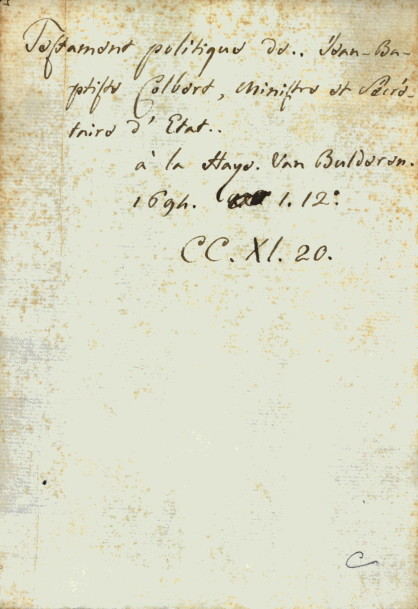 Testament politique de.. Jean-Ba-
ptiste Colbert, Ministre et Secré-
taire d'Etat..
à la Haye. Van Bulderen.
1694. 1. 12°
CC. XI. 20.
C